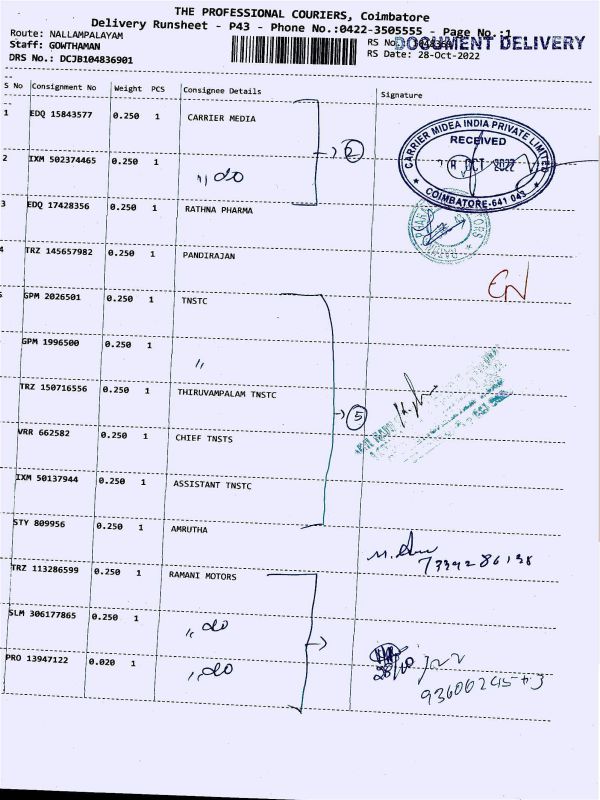 THE PROFESSIONAL COURIERS, Coimbatore
Delivery Runsheet - P43 - Phone No.:0422-3505555 - Page No.:1
Route: NALLAMPALAYAM
Staff: GOWTHAMAN
DRS No.: DCJB104836901
RS No.:
DOCUMENT DELIVERY
RS Date: 28-Oct-2022
S No Consignment No Weight PCS Consignee Details Signature
1 EDQ 15843577 0.250 1 CARRIER MEDIA
2 IXM 502374465 0.250 1 ,, do
3 EDQ 17428356 0.250 1 RATHNA PHARMA
4 TRZ 145657982 0.250 1 PANDIRAJAN
GPM 2026501 0.250 1 TNSTC
GPM 1996500 0.250 1 ,,
TRZ 150716556 0.250 1 THIRUVAMPALAM TNSTC
VRR 662582 0.250 1 CHIEF TNSTS
IXM 50137944 0.250 1 ASSISTANT TNSTC
STY 809956 0.250 1 AMRUTHA
TRZ 113286599 0.250 1 RAMANI MOTORS
SLM 306177865 0.250 1 ,, do
PRO 13947122 0.020 1 ,, do
CARRIER MIDEA INDIA PRIVATE LIMITED
RECEIVED
OCT 2022
COIMBATORE-641 043
5
7339286138
28/10